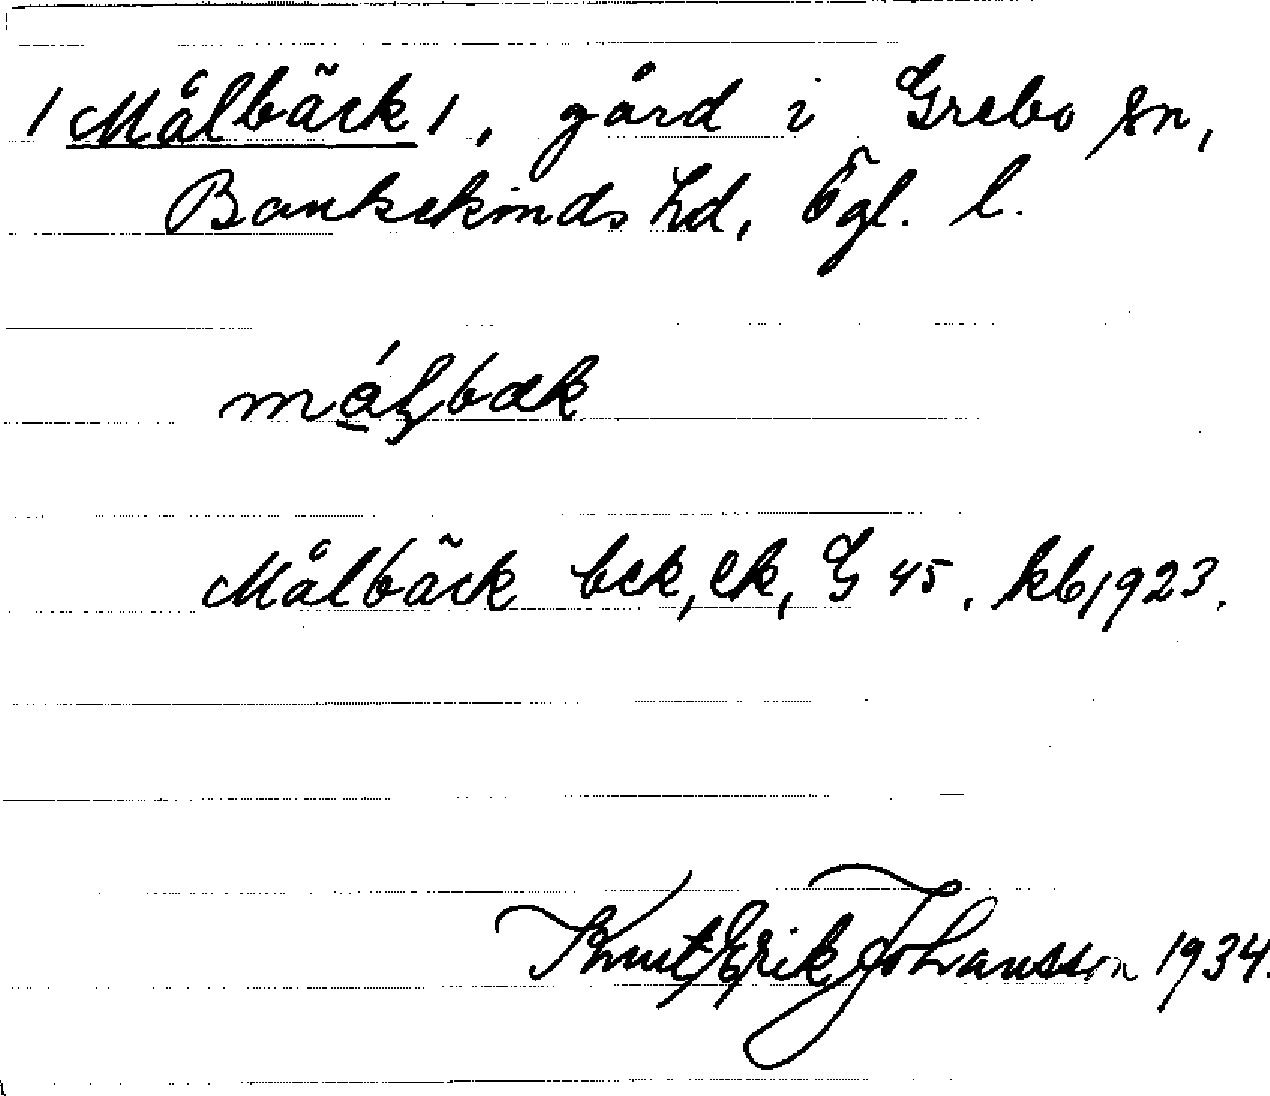 /Målbäck/, gård i Grebo sn,
Bankekinds hd, Ögl. l.
målbæk
Målbäck bck, ek, G 45, kb 1923.
Knut Erik Johansson 1934.